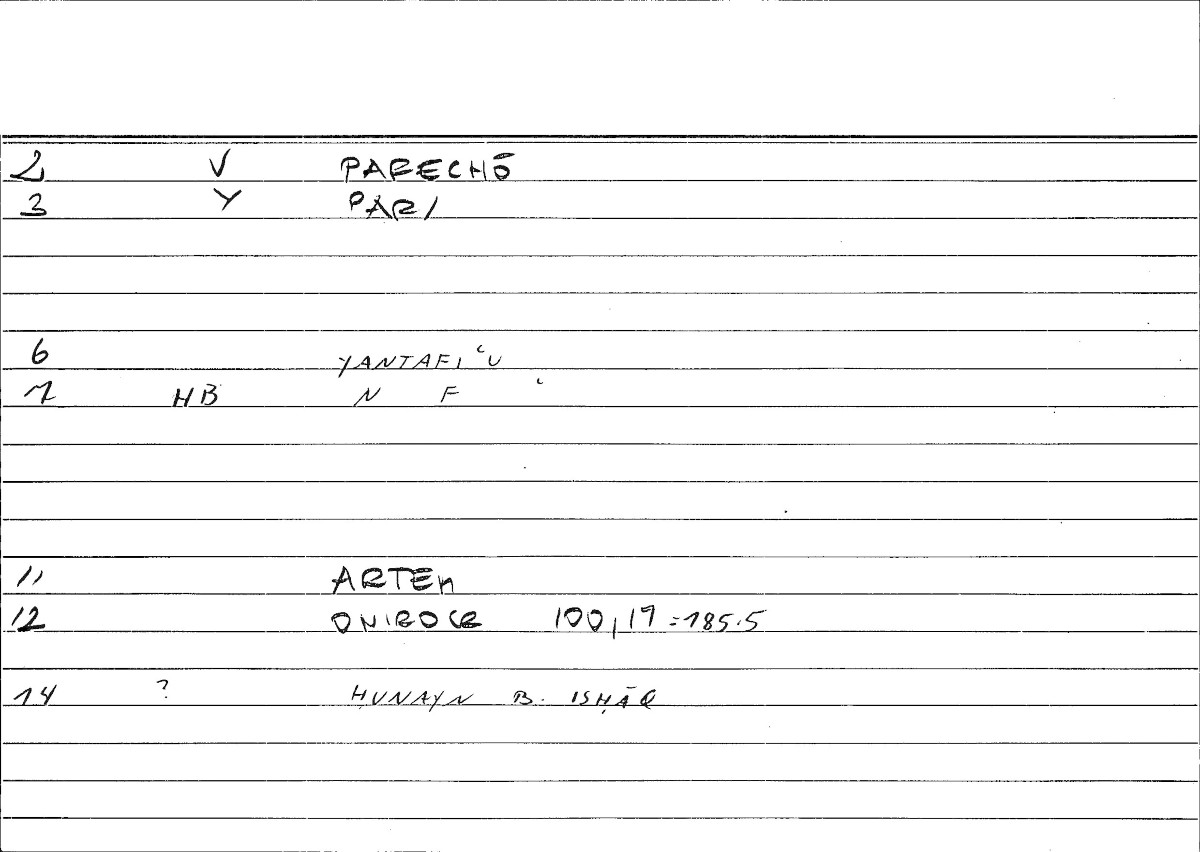 2 V PARECHŌ
3 Y PARI
6 YANTAFIʿU
7 HB N F ʿ
11 ARTEM
12 ONIROCR 100,19=185.5
14 ? ḤUNAYN B. ISḤĀQ